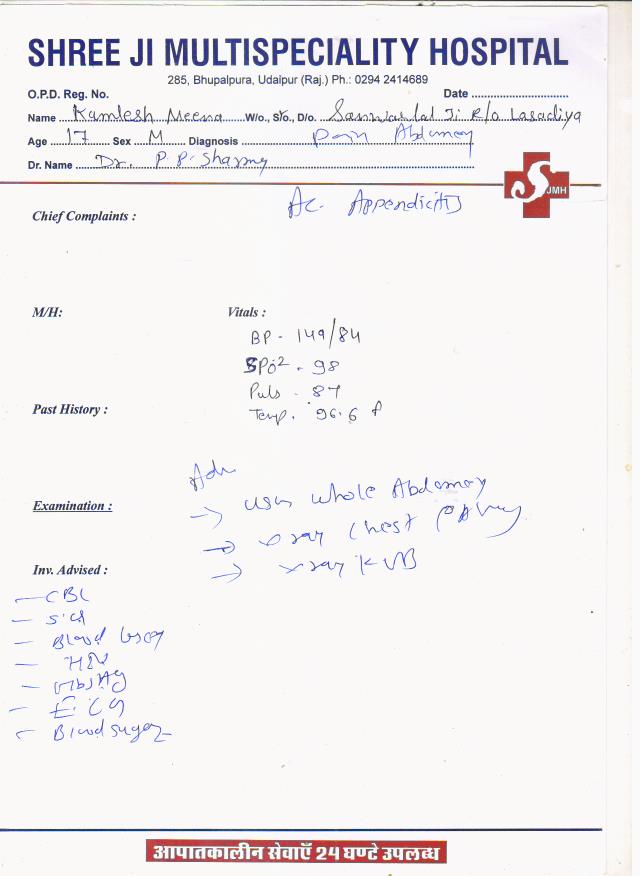 SHREE JI MULTISPECIALITY HOSPITAL
285, Bhupalpura, Udaipur (Raj.) Ph.: 0294 2414689
O.P.D. Reg. No. Date
Name Kamlesh Meena W/o., S/o., D/o. Sanwarlal Ji R/o Lasadiya
Age 17 Sex M Diagnosis Pain Abdomen
Dr. Name Dr. P.P. Sharma
JMH
Chief Complaints : Ac. Appendicitis
M/H: Vitals :
BP - 149/84
SPO2 - 98
Puls - 87
Past History : Temp. 96.6 F
Adv
Examination : → USG whole Abdomen
→ X ray Chest PA
Inv. Advised : → X ray KUB
— CBC
— S.Cr
— Blood Urea
— HIV
— HbsAg
— E.C.G
— Blood sugar
आपातकालीन सेवाएँ 24 घण्टे उपलब्ध